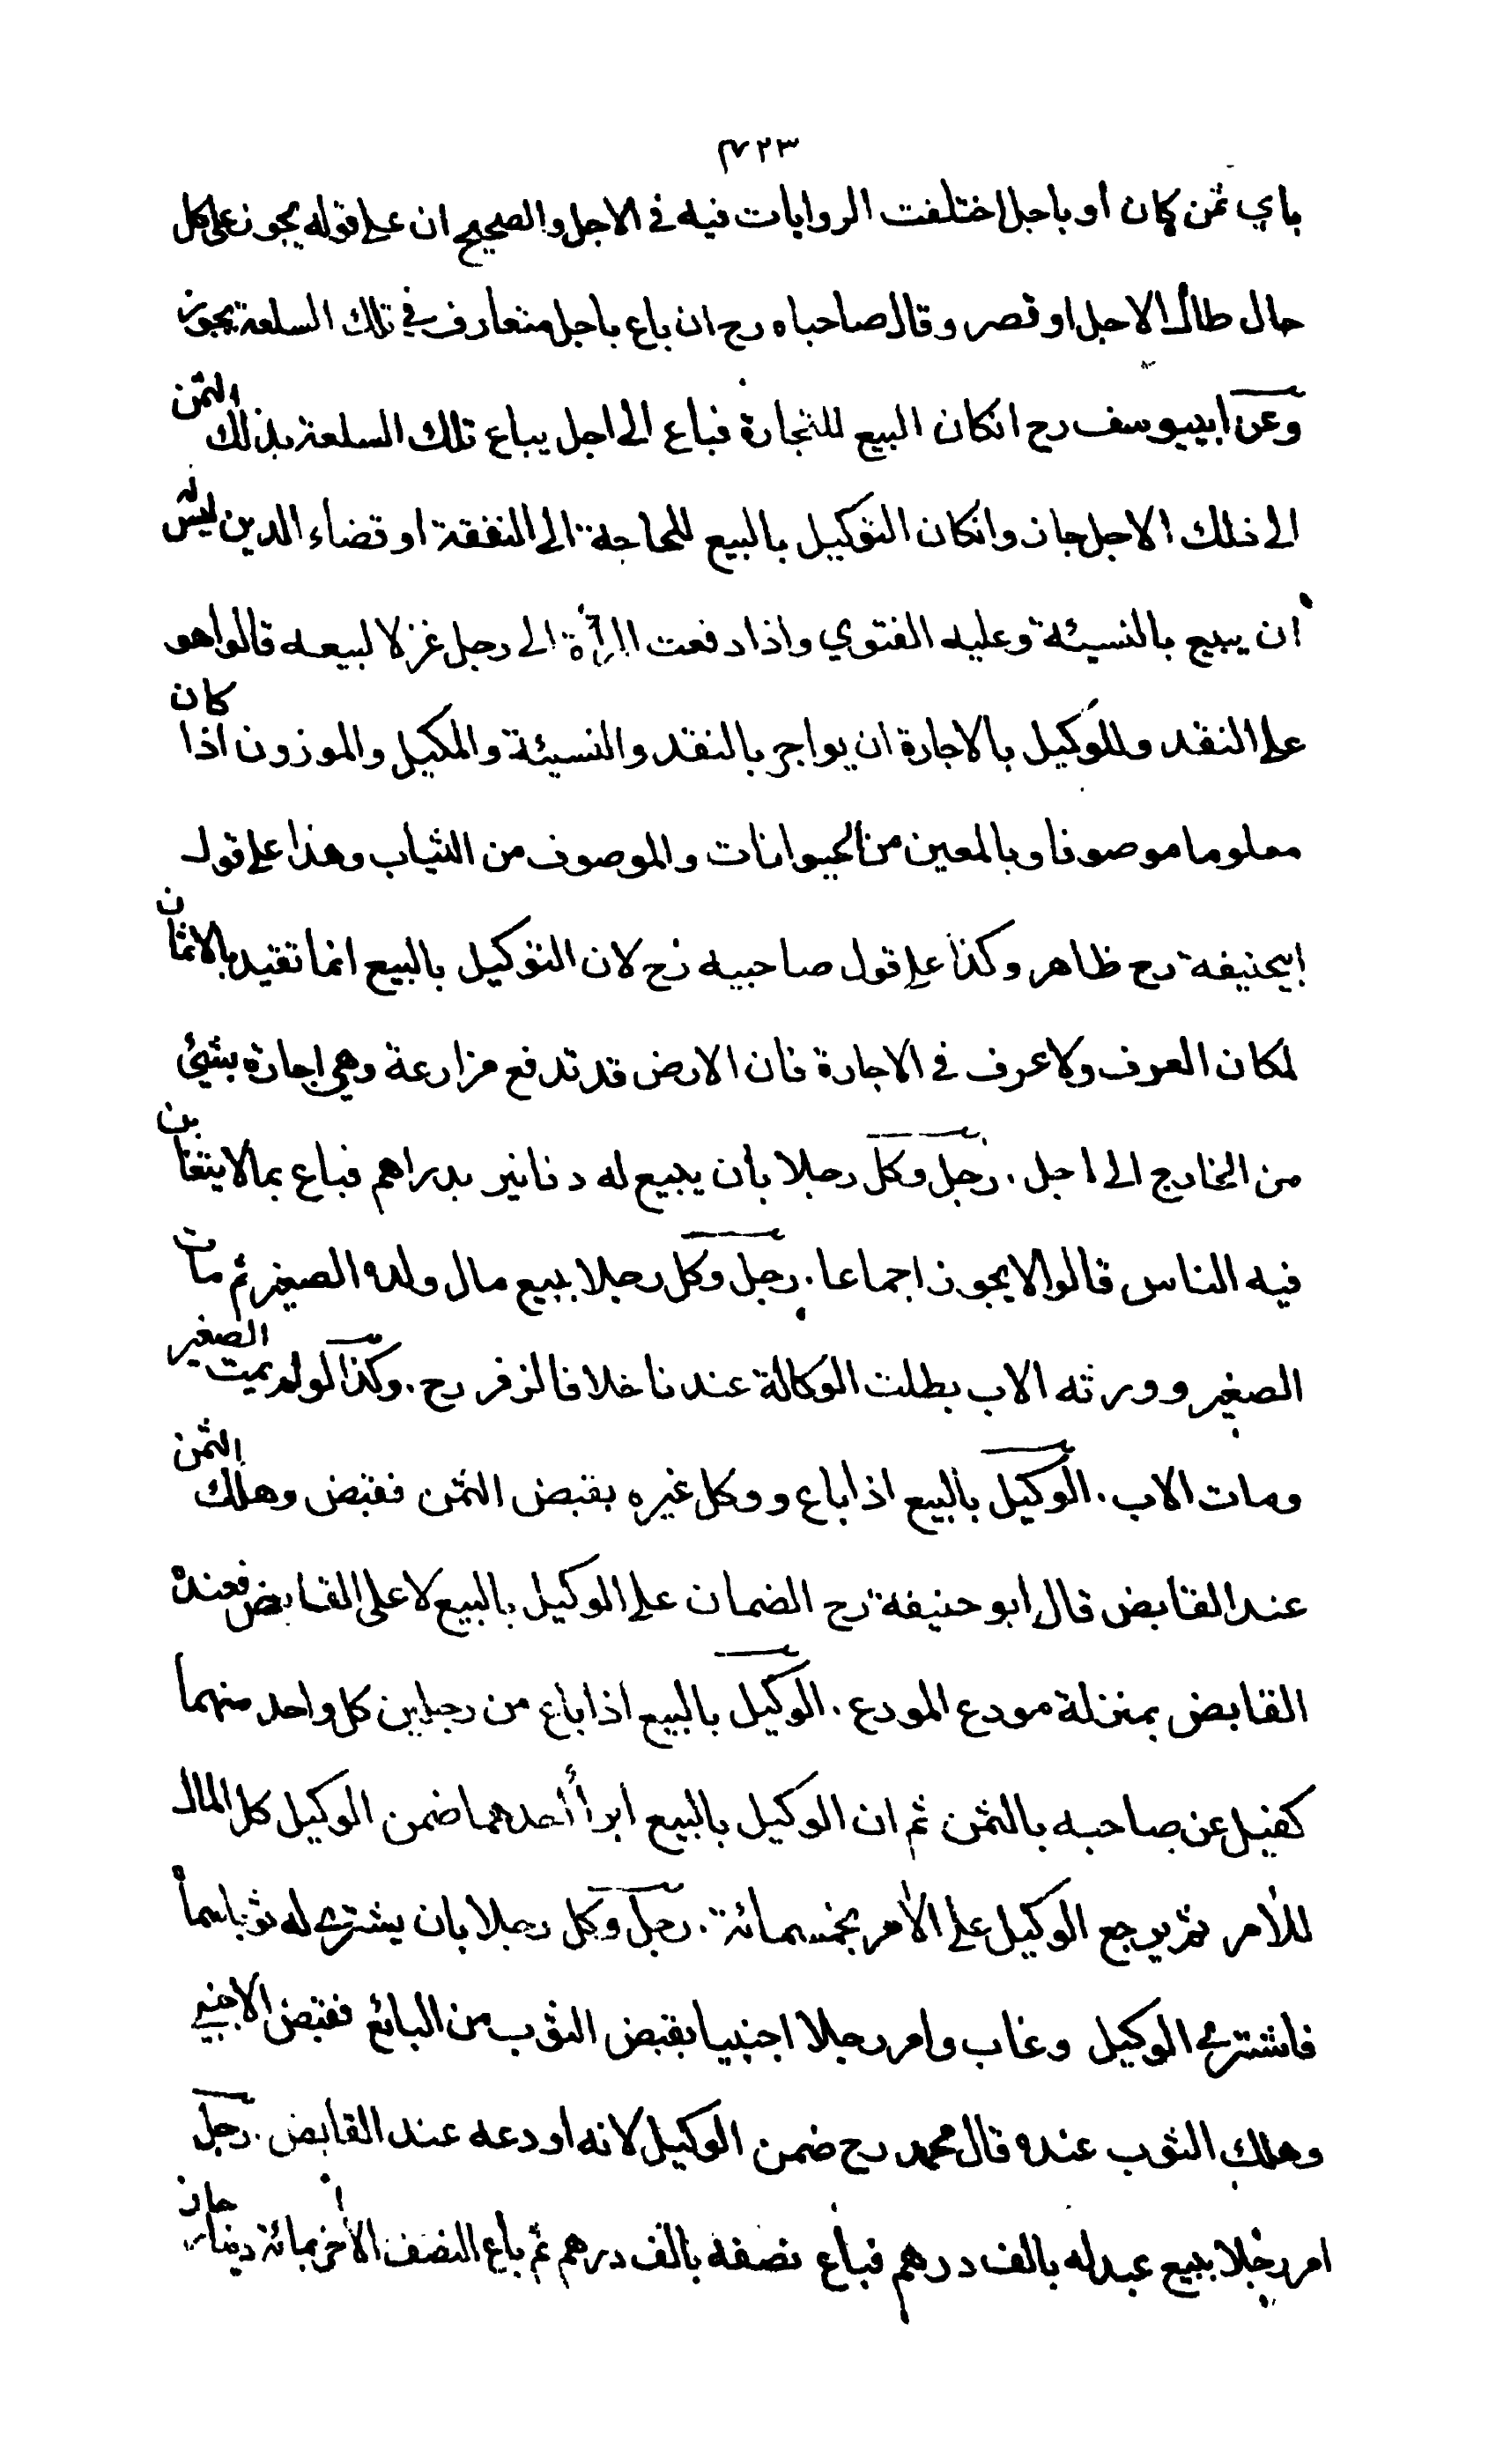 ٧٢٣
باي ثمن كان او باجل اختلفت الروايات فيه في الاجل والصحيح ان على قوله يجوز على كل
حال طال الاجل او قصر وقال صاحباه رح ان باع باجل متعارف في تلك السلعة يجوز
وعن ابييوسف رح انكان البيع للتجارة فباع الى اجل يباع تلك السلعة بذلك الثمن
الى ذلك الاجل جاز وانكان التوكيل بالبيع للحاجة الى النفقة او قضاء الدين ليس له
ان يبيع بالنسيئة وعليه الفتوي واذا دفعت المرأة الى رجل غزلا لبيعه قالوا هو
على النقد وللوكيل بالاجارة ان يواجر بالنقد والنسيئة والمكيل والموزون اذا كان
معلوما موصوفا وبالمعين من الحيوانات والموصوف من الثياب وهذا على قول
ابيحنيفة رح ظاهر وكذا على قول صاحبيه رح لان التوكيل بالبيع انما تقيد بالاثمان
لمكان العرف ولا عرف في الاجارة فان الارض قد تدفع مزارعة وهي اجارة بشيئ
من الخارج الى اجل . رجل وكل رجلا بأن يبيع له دنانير بدراهم فباع بما لا يتغابن
فيه الناس قالوا لا يجوز اجماعا . رجل وكل رجلا ببيع مال ولده الصغير ثم مات
الصغير وورثه الاب بطلت الوكالة عندنا خلافا لزفر رح . وكذا لو لم يمت الصغير
ومات الاب . الوكيل بالبيع اذا باع ووكل غيره بقبض الثمن فقبض وهلك الثمن
عند القابض قال ابو حنيفة رح الضمان على الوكيل بالبيع لا على القابض فعنده
القابض بمنزلة مودع المودع . الوكيل بالبيع اذا باع من رجلين كل واحد منهما
كفيل عن صاحبه بالثمن ثم ان الوكيل بالبيع ابرأ أحدهما ضمن الوكيل كل المال
للآمر ثم يرجع الوكيل على الآمر بخمسمائة . رجل وكل رجلا بان يشتري له ثوبا سماه
فاشتري الوكيل وغاب وامر رجلا اجنبيا بقبض الثوب من البائع فقبض الاجنبي
وهلك الثوب عنده قال محمد رح ضمن الوكيل لانه اودعه عند القابض . رجل
امر رجلا ببيع عبد له بالف درهم فباع نصفه بالف درهم ثم باع النصف الآخر بمائة دينار جاز